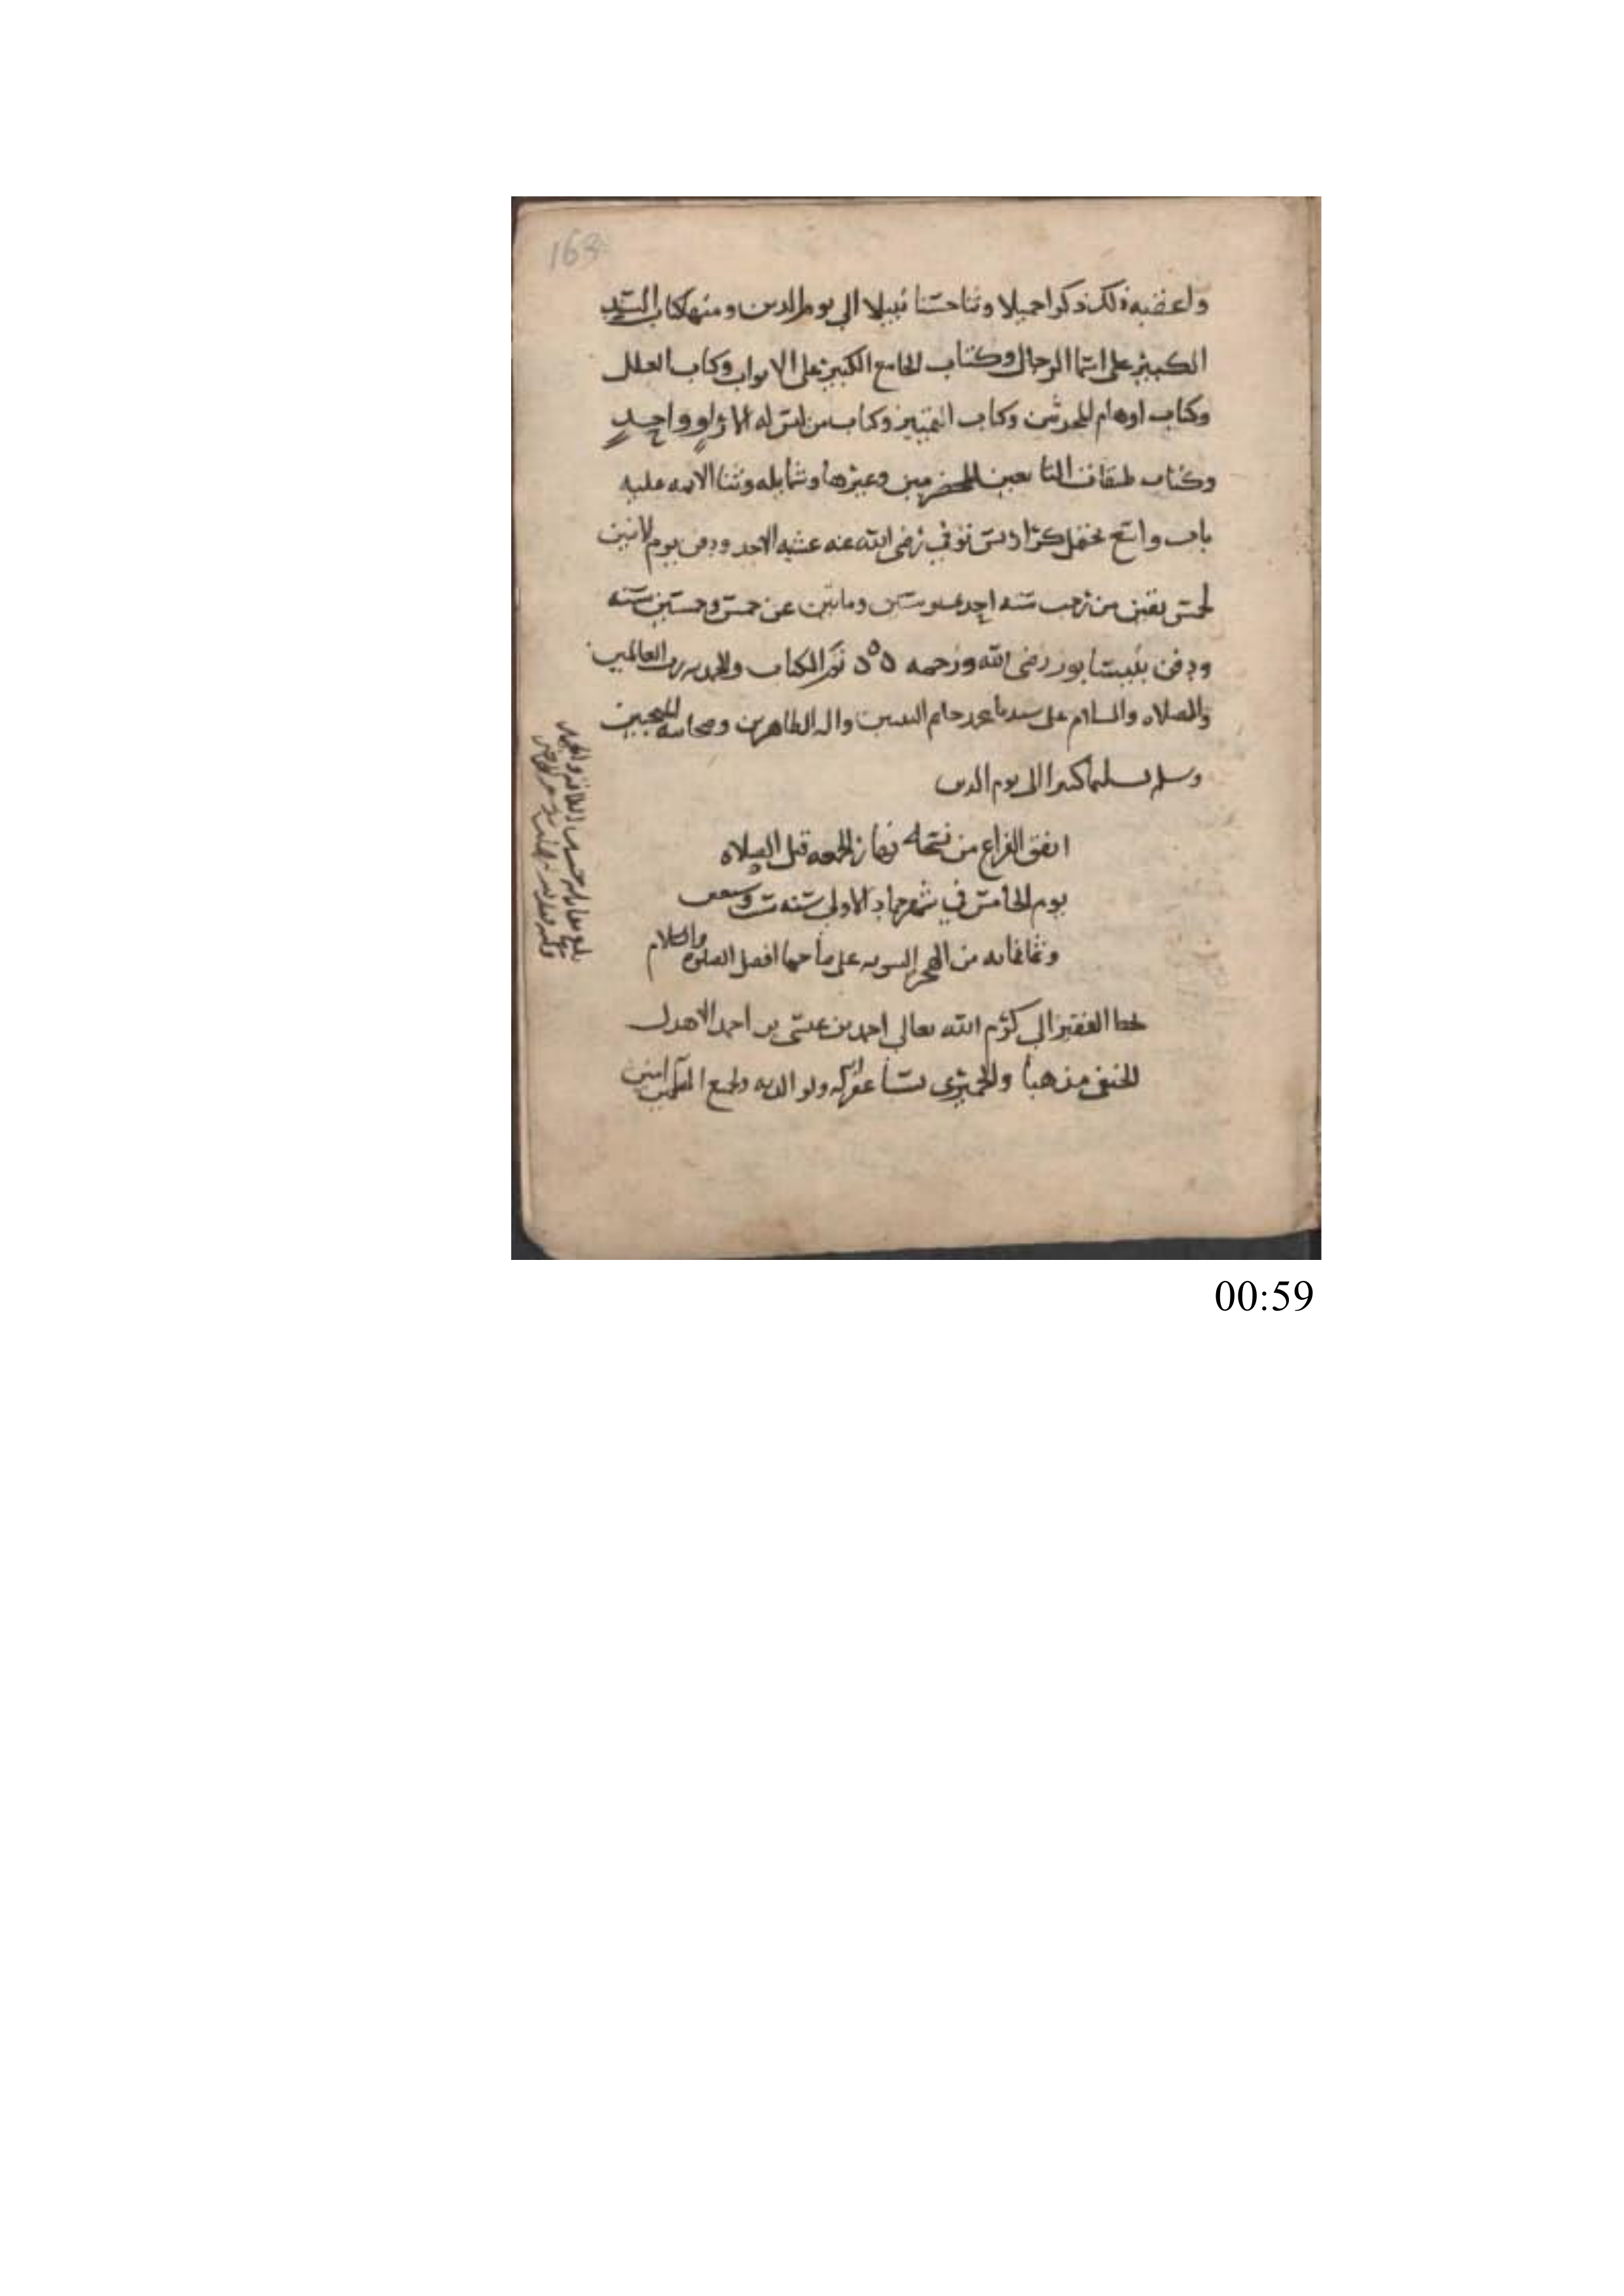 163
واعقبه ذلك ذكرا جميلا وثنا حسنا نبيلا الى يوم الدين ومنها كتاب المسند
الكبير على اسما الرجال وكتاب الجامع الكبير على الابواب وكتاب العلل
وكتاب اوهام المحدثين وكتاب التمييز وكتاب من ليس له الا راو واحد
وكتاب طبقات التابعين المخضرمين وغيرها وشمايله وثنا الايمه عليه
باب واسع كراريس توفي رضي الله عنه عشيه الاحد ودفن يوم الاثنين
لخمس بقين من رجب سنه احد وستين ومايتين عن خمس وخمسين سنه
ودفن بنيسابور رضي الله ورحمه ٥٥٥ تم الكتاب والحمد لله رب العالمين
والصلاه والسلام على سيدنا محمد خاتم النبيين واله الطاهرين وصحابته
وسلم تسليما كثيرا الى يوم الدين
اتفق الفراغ من نهار الجمعه قبل الصلاه
يوم الخامس في شهر جماد الاولى سنه ست
وثمانمايه من الهجره النبويه على صاحبها افضل الصلوه والسلام
بخط الفقير الى كرم الله تعالى احمد بن عيسى بن احمد الاهدل
الحنفي مذهبا غفر الله له ولوالديه ولجميع المسلمين امين
بلغ مقابله
00:59